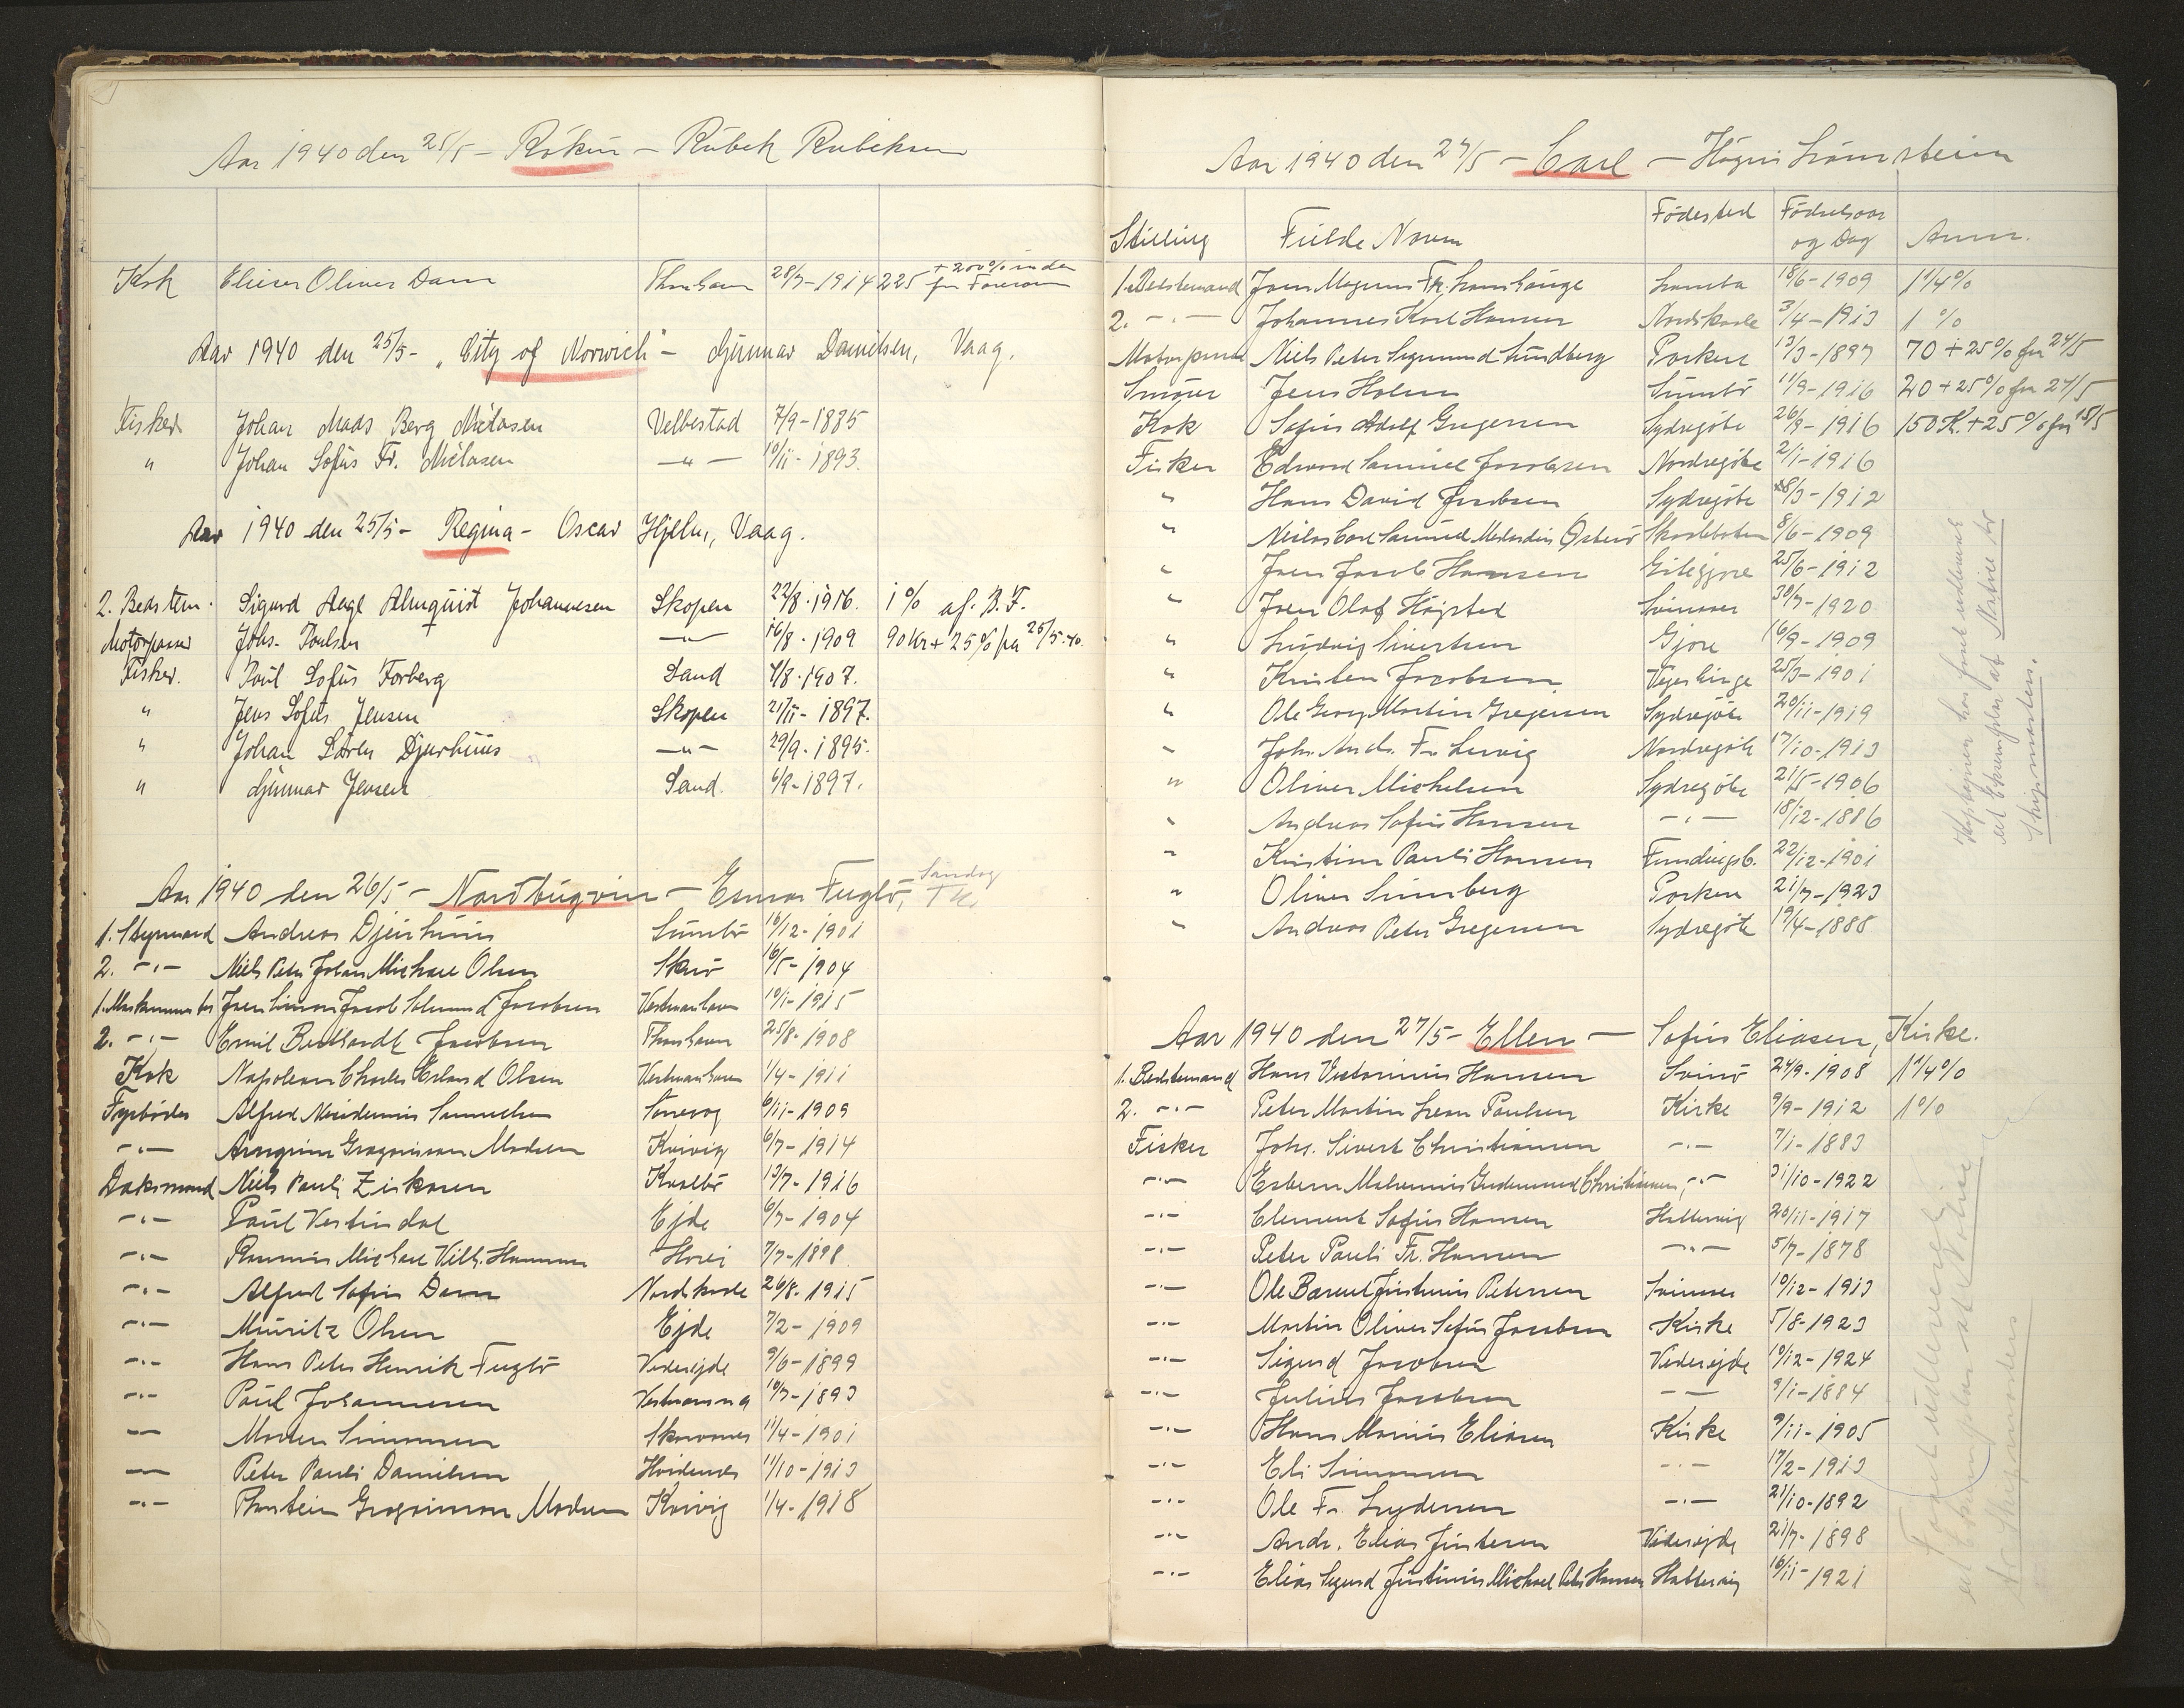 Aar 1940 den 25/5 - Rókur - Rúbek Rubeksen
Kok Elieser Oliver Dam Thorshavn 28/7-1914 225 + 200% inden for Farezonen
Aar 1940 den 25/5 - "City of Norwich" - Gunnar Danielsen, Vaag.
Fisker Johan Mads Berg Niclasen Velbestad 7/9-1885
" Johan Sofus Fr. Niclasen -"- 10/11-1893.
Aar 1940 den 25/5 - Regina - Oscar Hjelm, Vaag.
2. Bedstem. Sigurd Aage Almquist Johannesen Skopen 22/8.1916. 1% af. B.F.
Motorpasser Johs. Poulsen -"- 16/8.1909 90 Kr + 25% fra 25/5-40.
Fisker. Poul Sofus Forberg Sand 4/8.1907.
" Jens Sofus Jensen Skopen 21/11-1897.
" Johan Sören Djurhuus -"- 29/9.1895.
" Gunnar Jensen Sand. 6/9-1897.
Aar 1940 den 26/5 - Nordbúgvin - Fuglø, Sandag
1. Styrmand Andreas Djurhuus Sumbø 16/12-1901
2. -"- Niels Peter Johan Michael Olsen 16/5-1904
1. Maskinmester Jens Simon Jacob Jacobsen Vestmanhavn 10/1-1915
2. -"- Emil Berthardt Jacobsen Thorshavn 25/8-1908
Kok Napoleon Charles Olsen Vestmanhavn 1/4-1911
Fyrböder Alfred Samuelsen Sørvaag 6/11-1909
-"- Madsen Kvivig 6/7-1914
Daksmand Niels Pauli Ziskasen Kvalbø 13/7-1916
-"- Paul Vestindal Ejde 6/7-1904
-"- Michael Vilh. Hansen Hvov 7/7-1898
-"- Alfred Sofus Dam Nordskaale 26/8-1915
-"- Mauritz Olsen Ejde 7/2-1909
-"- Hans Peter Henrik Fuglø Viderejde 9/6-1899
-"- Paul Johannesen Vestmanna 10/7-1893
-"- Morten Simonsen Skarvanes 11/4-1901
-"- Peter Pauli Danielsen Hvidenæs 11/10-1913
-"- Thorstein Madsen Kvivig 1/4-1918
Aar 1940 den 27/5 - Carl - Högni
Stilling Fulde Navn Födested Födselsaar og Dag Anm.
1. Bedstemand Joen Magnus Fr. Lamhauge Lamba 18/6-1909 1 1/4%
2. -"- Johannes Karl Hansen Nordskaale 3/4-1913 1 %
Motorpasser Niels Peter Sigmund Sundberg Porkere 13/3-1897 70 + 25% fra 27/5
Smører Jens Holm Sumbø 11/9-1916 20 + 25% fra 27/5
Kok Sofus Adolf Gregersen Sydregöte 26/9-1916 150 K. + 25% fra 15/5
Fisker Edward Samuel Jacobsen Nordregöte 2/1-1916
" Hans David Jacobsen Sydregöte 28/3-1912
" Niclas Carl Samuel Østerø Skaalebotn 8/6-1909
" Joen Jacob Hansen Gilegjore 25/6-1912
" Joen Olaf Höjsted Svinaar 30/7-1920
" Ludvig Sivertsen Gjov 16/9-1909
" Kristen Jacobsen 25/3-1901
" Ole Georg Martin Gregersen Sydregöte 20/11-1919
" Joh. Andr. Fr. Lervig Nordregöte 17/10-1913
" Oliver Michelsen Sydregöte 21/5-1906
" Andreas Sofus Hansen -"- 18/12-1886
" Kristian Pauli Hansen Funningsb. 22/12-1901
" Oliver Sumberg Porkere 21/7-1923
" Andreas Peter Gregersen Sydregöte 19/4-1888
har faaet udleveret
et Exemplar af Notice to
Skipmasters.
Aar 1940 den 27/5 - Ellen - Sofus Eliasen, Kirke.
1. Bedstemand Hans Victorinus Hansen Svinø 24/9-1908 1 1/4%
2. -"- Peter Martin Poulsen Kirke 9/9-1912 1%
Fisker Johs. Sivert Christiansen -"- 7/1-1883
-"- Esbern Christiansen, -"- 31/10-1922
-"- Clement Sofus Hansen Hattervig 20/11-1917
-"- Peter Pauli Fr. Hansen -"- 5/7-1878
-"- Ole Barent Justinus Petersen Svinaar 10/12-1913
-"- Martin Oliver Sofus Jacobsen Kirke 5/8-1923
-"- Sigurd Jacobsen Viderejde 10/12-1924
-"- Julius Jacobsen -"- 9/1-1884
-"- Hans Marius Eliasen Kirke 9/11-1905
-"- Eli Simonsen -"- 17/2-1913
-"- Ole Fr. Lydersen -"- 21/10-1892
-"- Andr. Elias Justesen Viderejde 21/7-1898
-"- Elias Sigurd Justinus Michael Peter Hansen Hattervig 16/11-1921
Faaet udleveret
et Exemplar af Notice
to Skipmasters